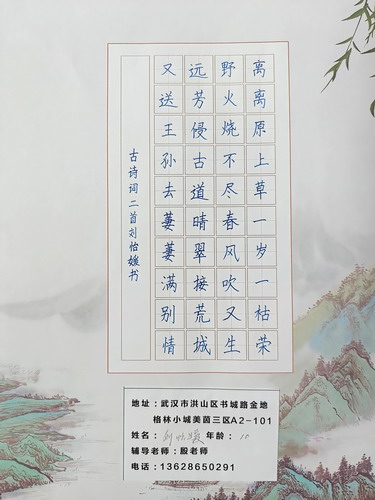 离离原上草一岁一枯荣
野火烧不尽春风吹又生
远芳侵古道晴翠接荒城
又送王孙去萋萋满别情
古诗词二首刘怡媛书
地址：武汉市洪山区书城路金地
格林小城美茵三区A2-101
姓名：刘怡媛 年龄：10
辅导老师：殷老师
电话：13628650291